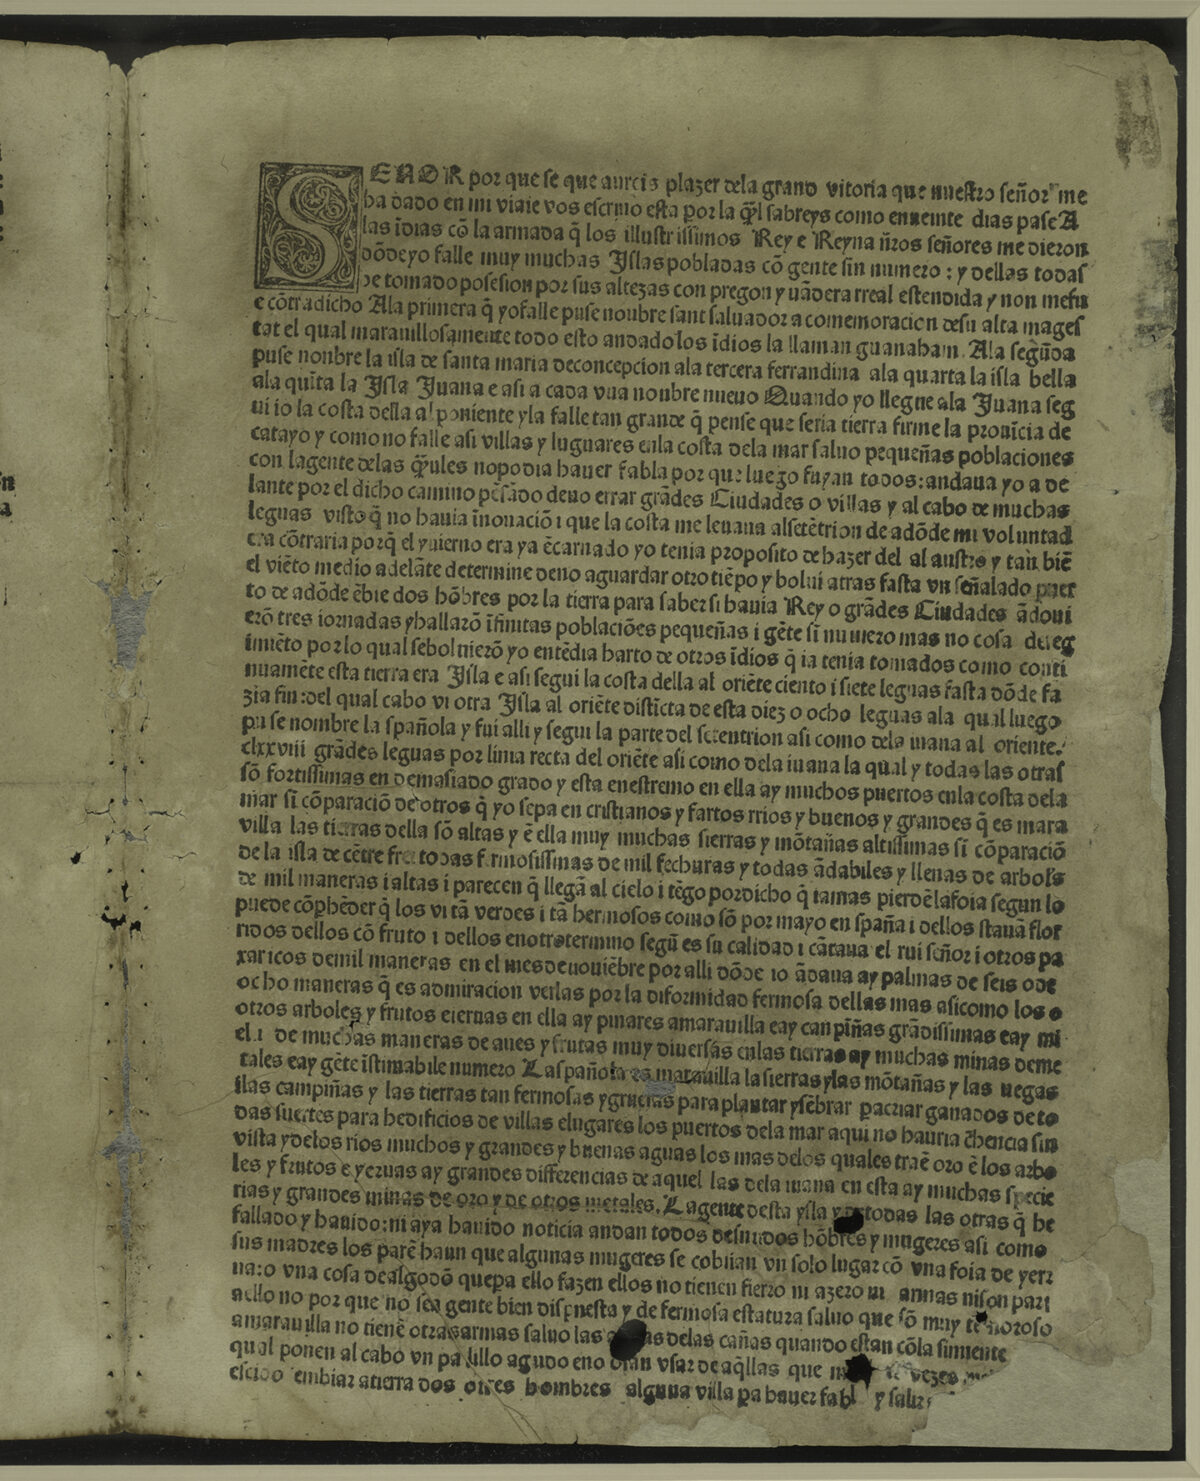 SEÑOR por que se que aureis plazer dela grand vitoria que nuestro señor me
ha dado en mi viaie vos escriuo esta por la q̃l sabreys como enueinte dias pase A
las ĩdias cõ la armada q̃ los illustrissimos Rey e Reyna ñros señores me dieron
dõdeyo falle muy muchas Islas pobladas cõ gente sin numero : y dellas todas
he tomado posesion por sus altezas con pregon y uãdera rreal estendida y non mefu
e cõtradicho Ala primera q̃ yofalle puse noubre sant saluador a comemoracion desu alta mages
tat el qual marauillosamente todo esto andado los ĩdios la llaman guanaham. Ala segũda
puse noubre la isla de santa maria deconcepcion ala tercera ferrandina ala quarta la isla bella
ala quĩta la Isla Juana e asi a cada vna noubre nueuo Quando yo llegue ala Juana seg
ui io la costa della al poniente yla falle tan grande q̃ pense que seria tierra firme la prouĩcia de
catayo y como no falle asi villas y luguares enla costa dela mar saluo pequeñas poblaciones
con lagente delas q̃ules nopodia hauer fabla por que luego fuyan todos: andaua yo a de
lante por el dicho camino pẽsãdo deuo errar grãdes Ciudades o villas y al cabo de muchas
leguas visto q̃ no hauia ĩnouaciõ i que la costa me leuaua alsetẽtrion de adõde mi voluntad
era cõtraria porq̃ el yuierno era ya ẽcarnado yo tenia proposito de hazer del al austro y tan biẽ
el viẽto medio adelãte determine deno aguardar otro tiẽpo y bolui atras fasta vn señalado puer
to de adõde ẽbie dos hõbres por la tierra para saber si hauia Rey o grãdes Ciudades ãdoui
erõ tres iornadas yhallarõ ĩfinitas poblaciões pequeñas i gẽte sĩ numero mas no cosa dereg
imiẽto por lo qual sebolnierõ yo entẽdia harto de otros ĩdios q̃ ia tenia tomados como conti
nuamẽte esta tierra era Isla e asi segui la costa della al oriẽte ciento i siete leguas fasta dõde fa
zia fin: del qual cabo vi otra Isla al oriẽte distĩcta de esta diez o ocho leguas ala qual luego
puse nombre la spañola y fui alli y segui la parte del setentrion asi como dela iuana al oriente.
clxxviii grãdes leguas por linia recta del oriẽte asi como dela iuana la qual y todas las otras
sõ fortissimas en demasiado grado y esta enestremo en ella ay muchos puertos enla costa dela
mar sĩ cõparaciõ de otros q̃ yo sepa en cristianos y fartos rrios y buenos y grandes q̃ es mara
villa las tierras della sõ altas y ẽ ella muy muchas sierras y mõtañas altissimas sĩ cõparaciõ
de la isla de cẽtre fre todas fermosissimas de mil fechuras y todas ãdabiles y llenas de arbols
de mil maneras i altas i parecen q̃ llegã al cielo i tẽgo pordicho q̃ iamas pierdẽ lafoia segun lo
puede cõpħẽder q̃ los vi tã verdes i tã hermosos como sõ por mayo en spaña i dellos stauã flor
ridos dellos cõ fruto i dellos enotrotermino segũ es su calidad i cãtaua el rui señor i otros pa
xaricos demil maneras en el mes denouiẽbre por alli dõde io ãdaua ay palmas de seis o de
ocho maneras q̃ es admiracion verlas por la diformidad fermosa dellas mas asicomo los o
otros arboles y frutos eieruas en ella ay pinares amarauilla eay canpiñas grãdissimas eay mi
el i de muchas maneras de aues y frutas muy diuersas enlas tierras ay muchas minas deme
tales eay gẽte ĩstimabile numero Laspañola es marauilla la sierras ylas mõtañas y las uegas
ilas campiñas y las tierras tan fermosas ygruesas para plantar ysẽbrar pacriar ganados de to
das suertes para hedificios de villas elugares los puertos dela mar aqui no hauria chencia sin
vista ydelos rios muchos y grandes y buenas aguas los mas delos quales traẽ oro ẽ los arbo
les y frutos e yeruas ay grandes differencias de aquel las dela iuana en esta ay muchas specie
rias y grandes minas de oro y de otros metales. Lagente desta ysla y de todas las otras q̃ he
fallado y hauido: ni aya hauido noticia andan todos desnudos hõbres y mugeres asi como
sus madres los parẽ haun que algunas mugeres se cobiian vn solo lugar cõ vna foia de yerr
ua: o vna cosa dealgodõ quepa ello fazen ellos no tienen fierro ni azero ni armas nison part
aello no por que no sea gente bien dispuesta y de fermosa estatura saluo que sõ muy te noroso
amarauilla no tienẽ otras armas saluo las delas cañas quando estan cõla simiente
qual ponen al cabo vn palillo agudo eno vsar de aq̃llas que vezes
escido embiar atierra dos otres hombres alguna villa pa hauer fabl y salir